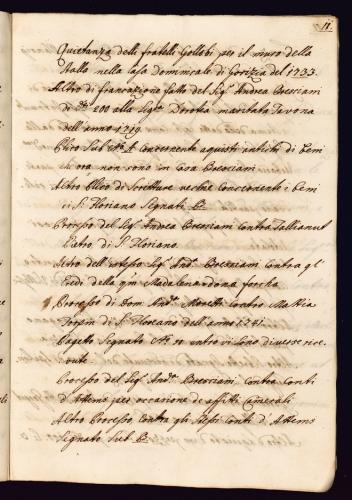 11.
Quietanza delli fratelli Gollobi per il muro della
Stalla nella casa Dominicale di Gorizia del 1733.
Altro di francazione fatto del Sigr Andrea Bresciani
di 200 alla Sigra Dorotea maritata Tavona
dell'anno 1719
Plico Sub N.o A concernente aquisti antichi di beni
ora non sono in Casa Bresciani
Altro Plico di Scritture vechie concernenti i beni
di S. Floriano Segnati B.
Processo del Sigr Andrea Bresciani Contra
Pietro di S. Floriano
Altro dell'istesso Sigr Anda Bresciani Contra gl'
Eredi della qm Madalena
Processo di Dom Anda Moretti Contra Mattia
di S. Floreano dell'anno 1741
Pageto Segnato N. entro vi sono diverse rice-
vute
Processo del Sigr Anda Bresciani Contra Conti
d'Attems per occasione de affitti Camerali
Altro Processo contra gli stessi Conti d'Attems
Segnato Sub C.